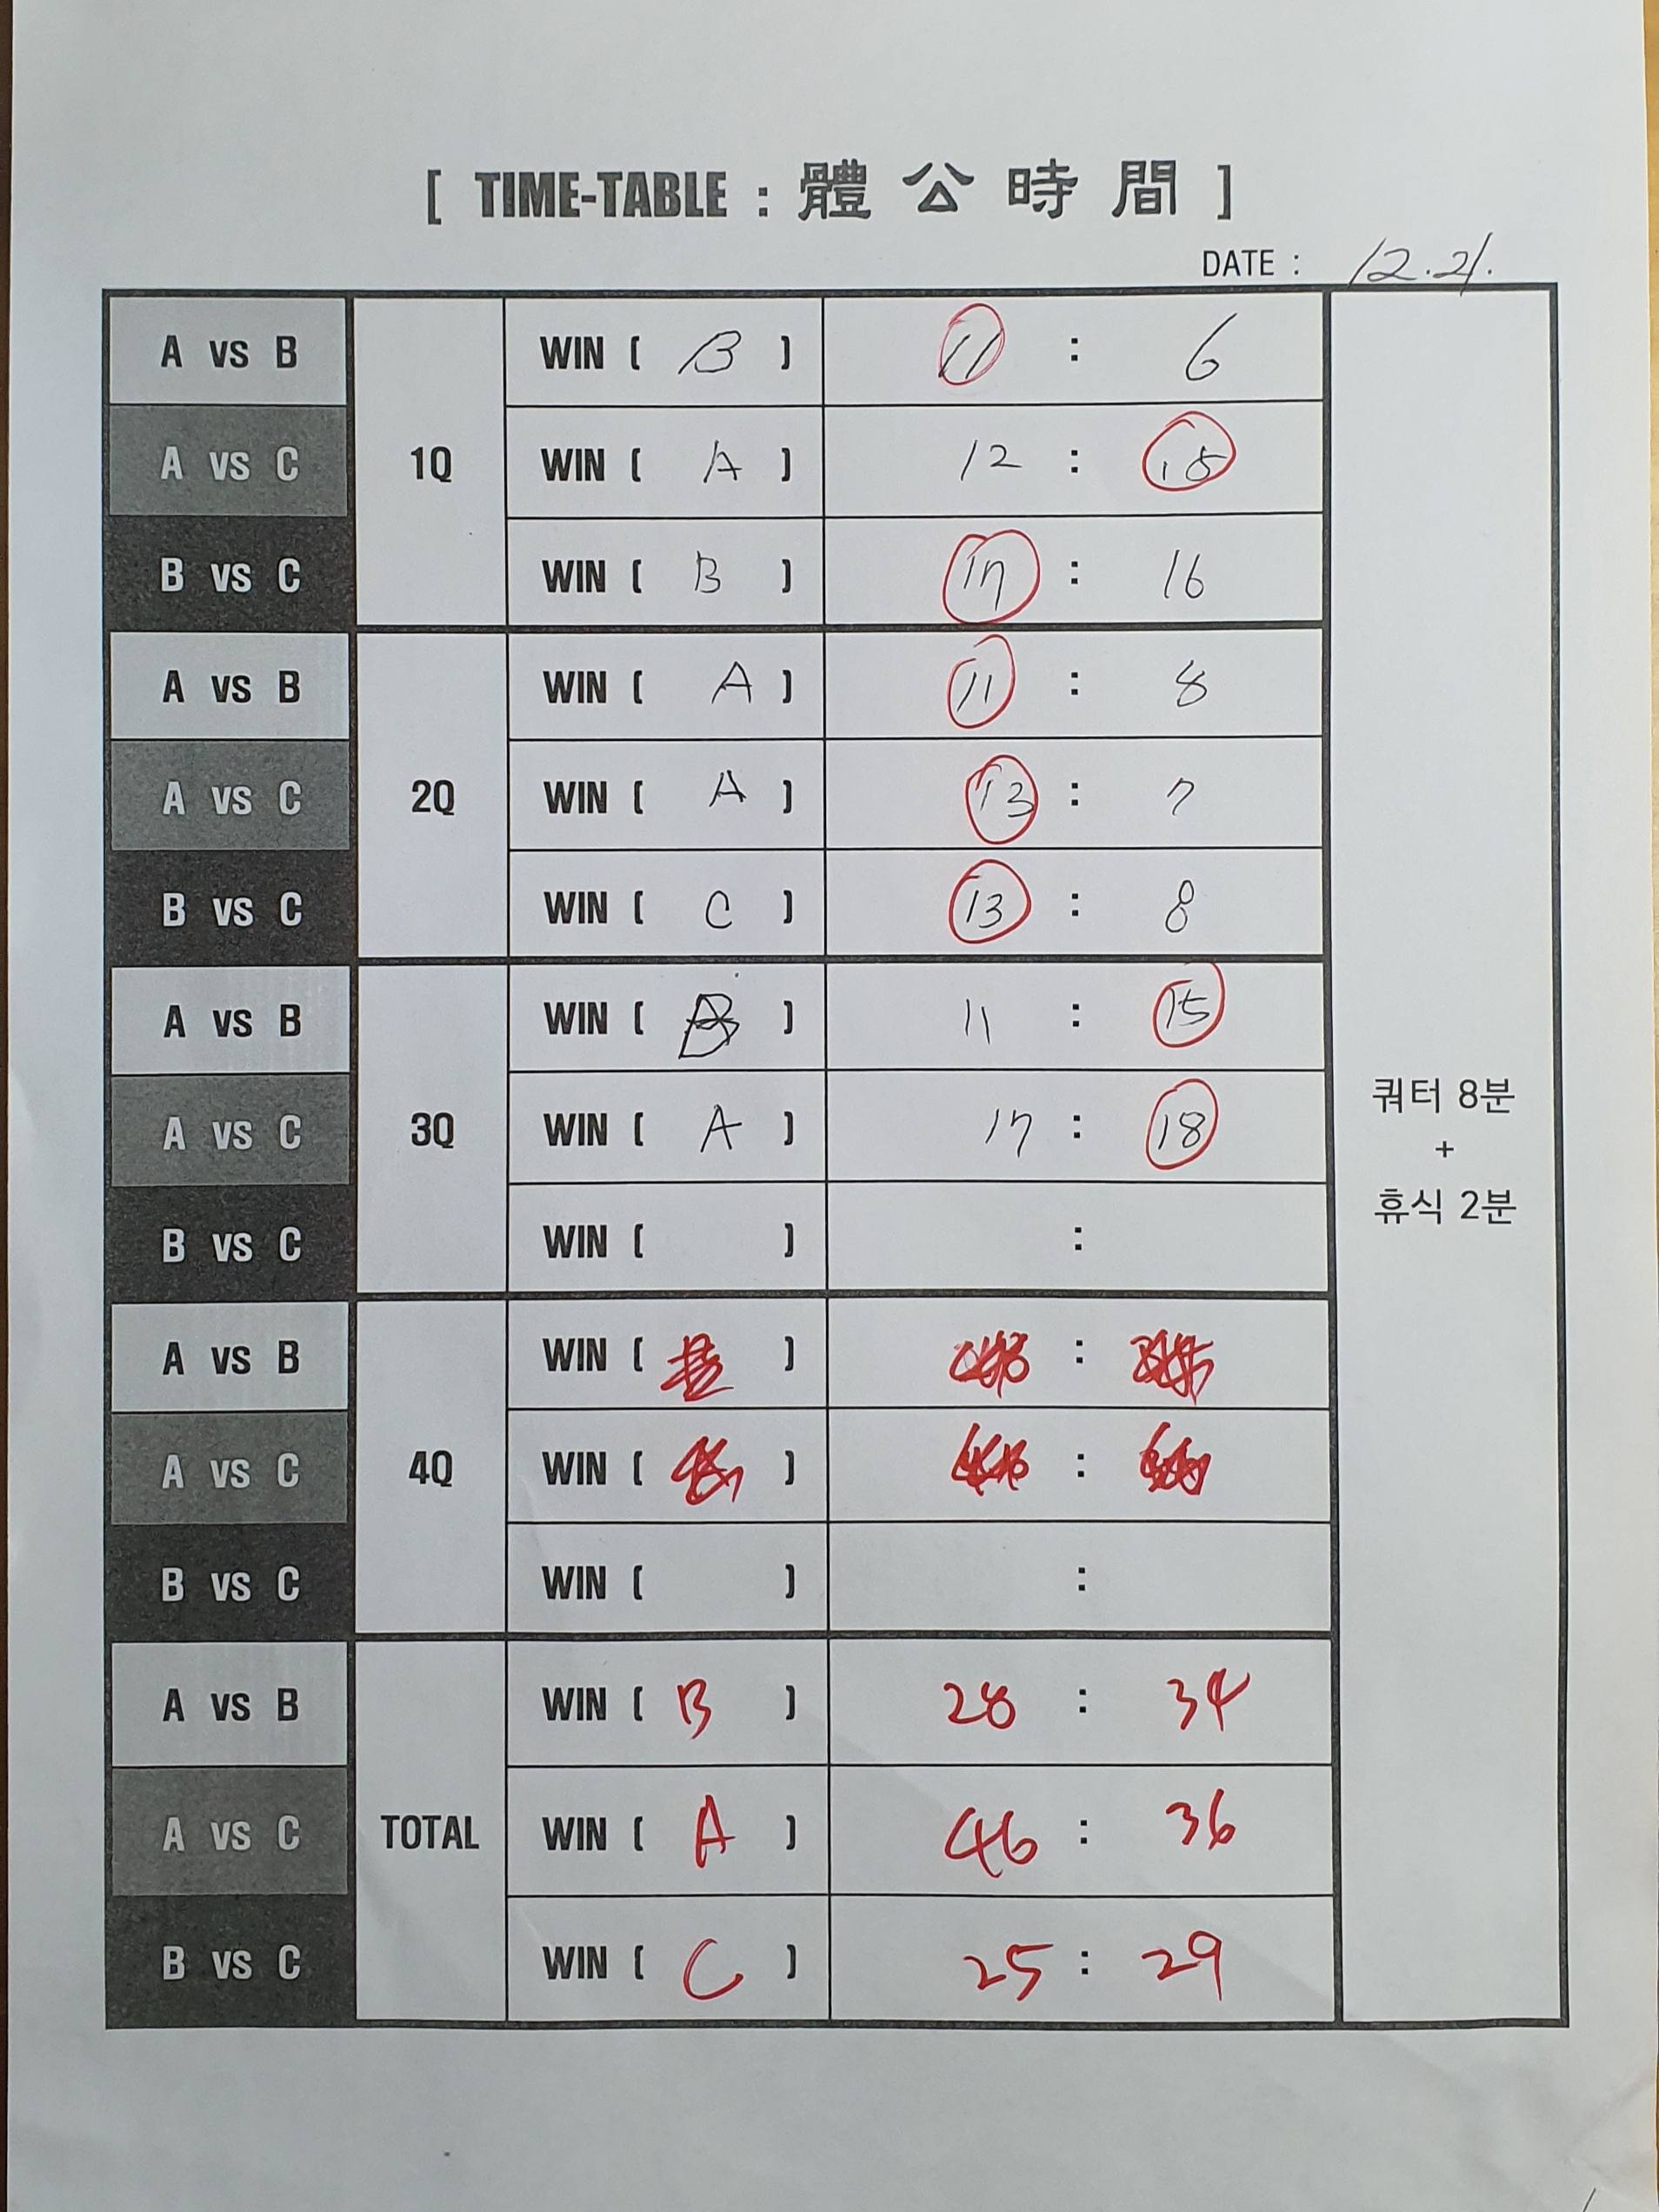 [ TIME-TABLE : 體公時間 ]
DATE : 12.21.
A vs B WIN ( B ) 11 : 6
A vs C 1Q WIN ( A ) 12 : 15
B vs C WIN ( B ) 17 : 16
A vs B WIN ( A ) 11 : 8
A vs C 2Q WIN ( A ) 13 : 7
B vs C WIN ( C ) 13 : 8
A vs B WIN ( B ) 11 : 15
A vs C 3Q WIN ( A ) 17 : 18
B vs C WIN ( ) :
쿼터 8분
+
휴식 2분
A vs B WIN ( ) :
A vs C 4Q WIN ( ) :
B vs C WIN ( ) :
A vs B WIN ( B ) 28 : 34
A vs C TOTAL WIN ( A ) 46 : 36
B vs C WIN ( C ) 25 : 29